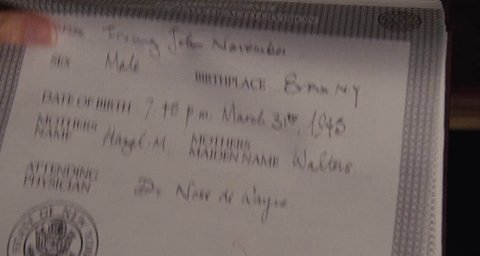 John November
SEX Male BIRTHPLACE Bronx NY
DATE OF BIRTH 7.40 p.m. March 31st, 1943
MOTHERS NAME Hazel M. MOTHERS MAIDEN NAME Walters
ATTENDING PHYSICIAN Dr Nose de Wayne